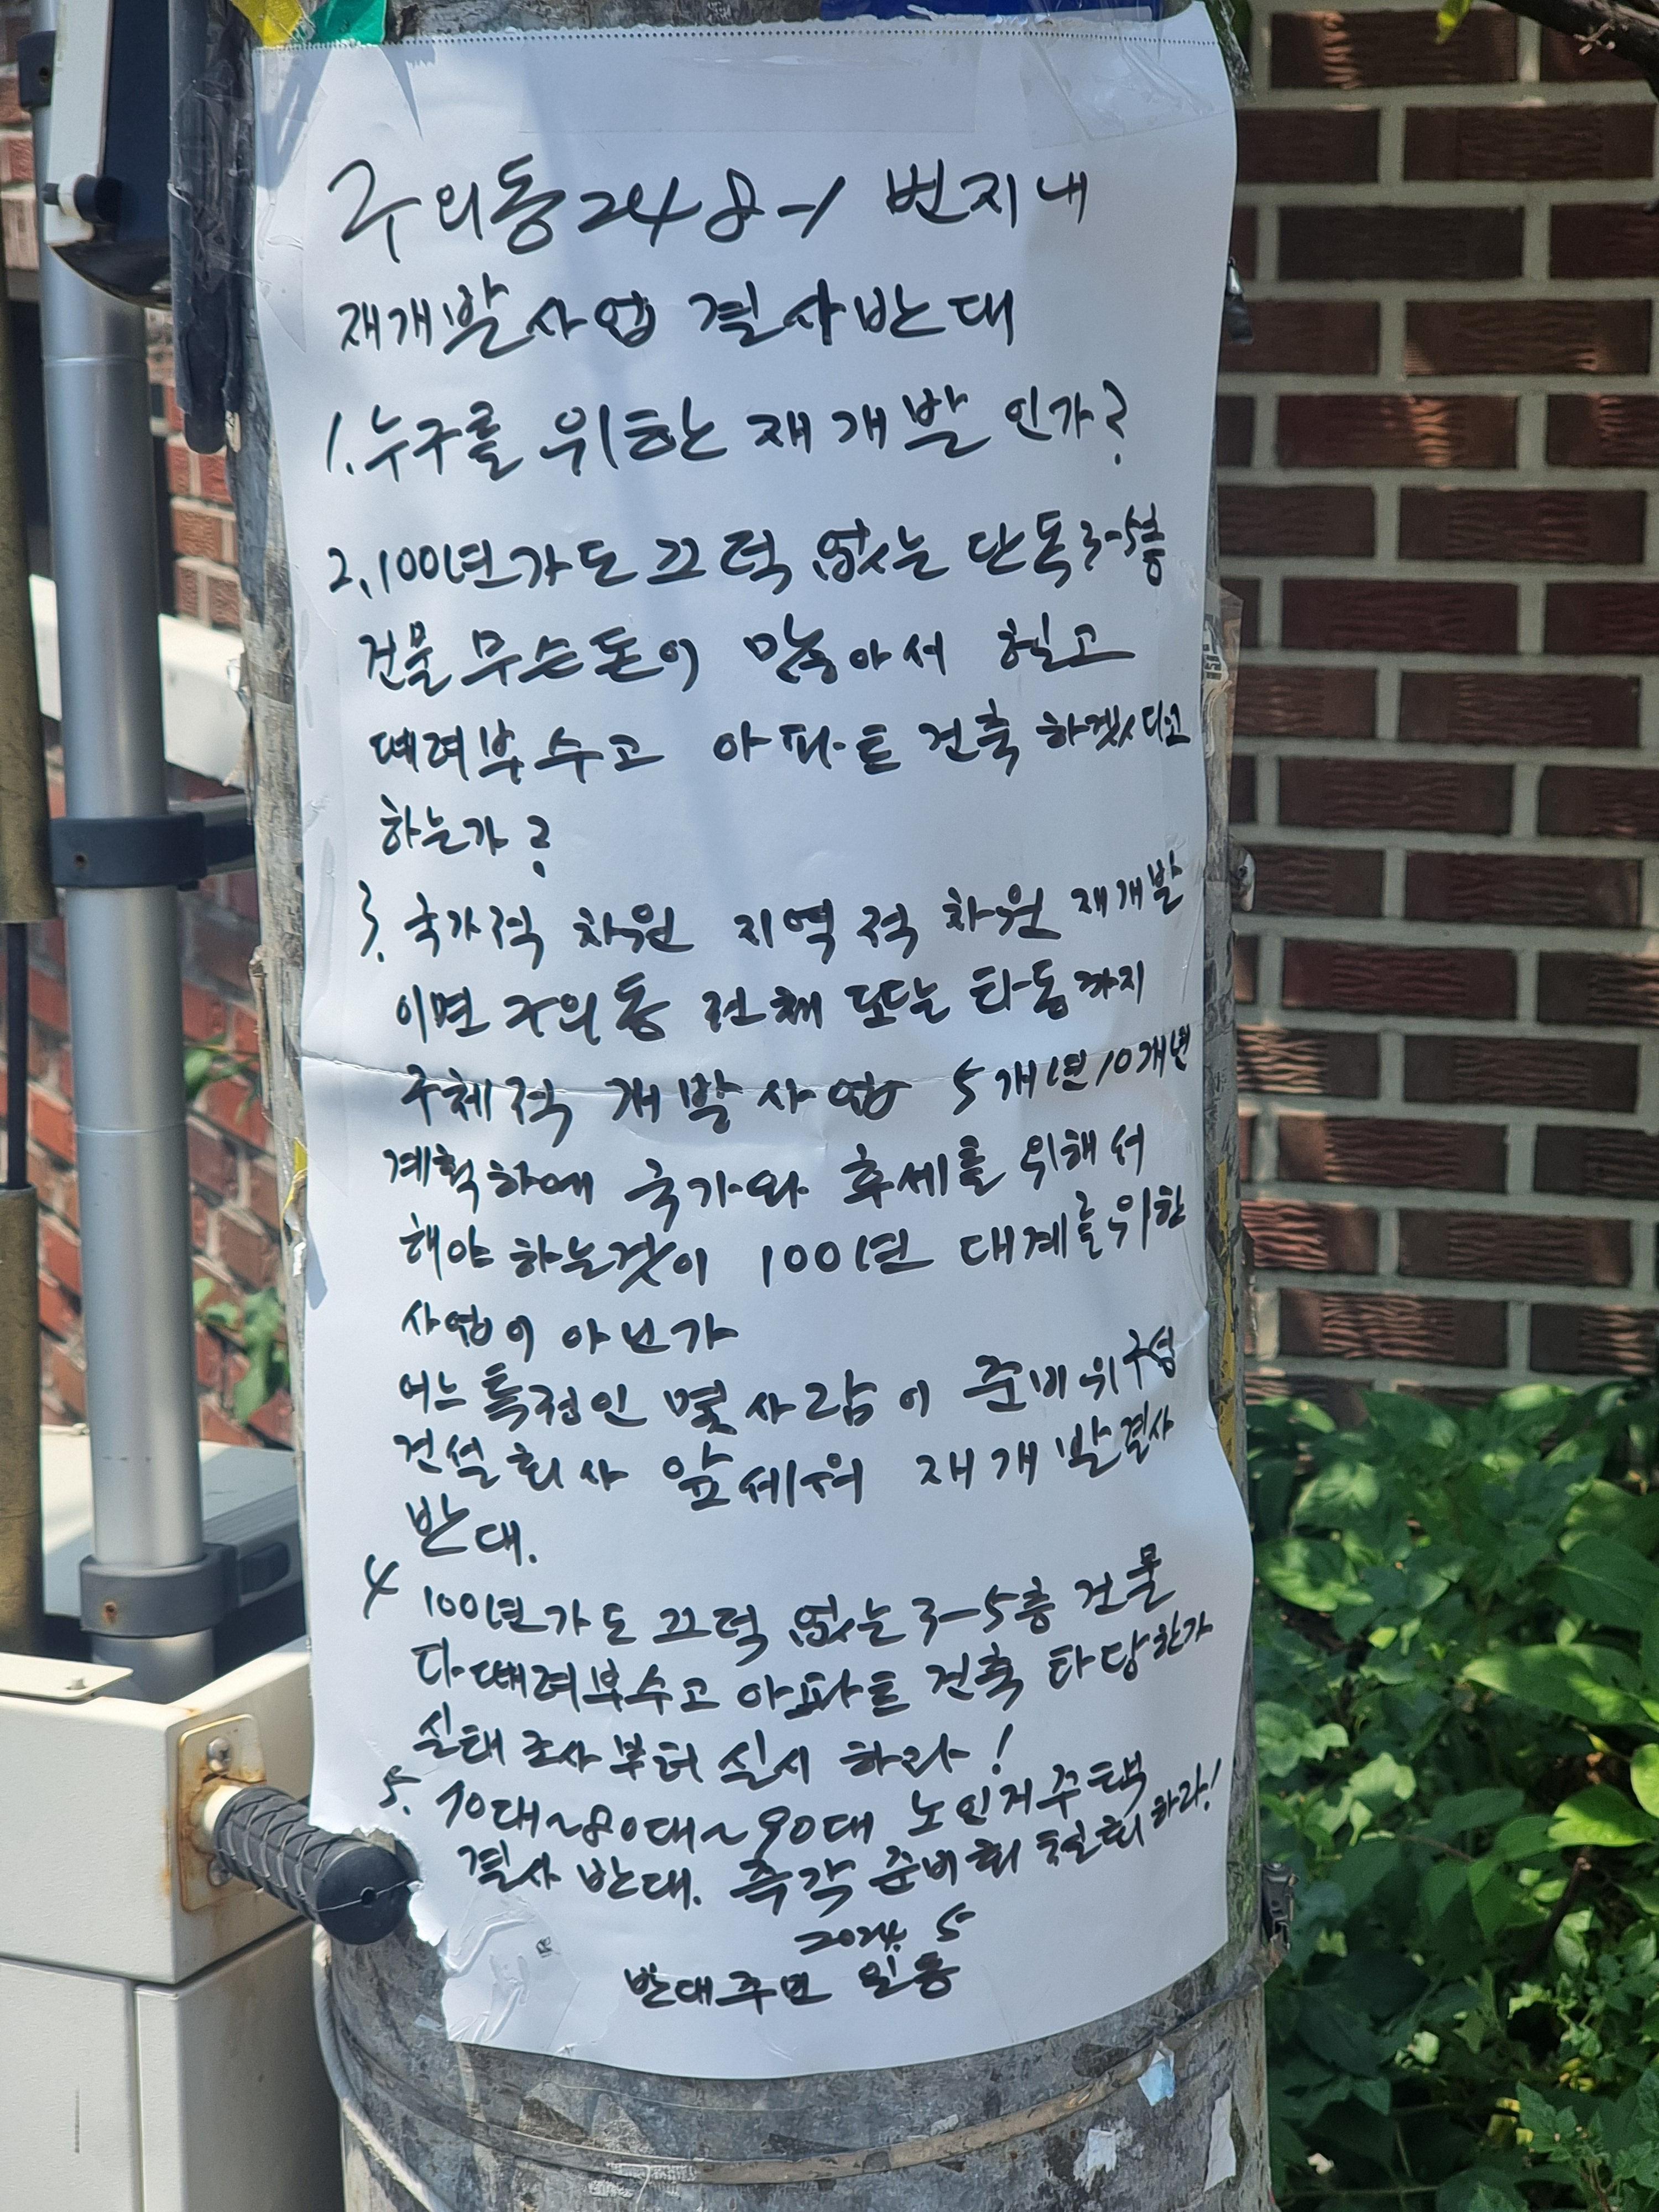 구의동 248-1 번지내
재개발사업 결사반대
1. 누구를 위한 재개발 인가?
2. 100년가도 끄떡 없는 단독 3-5층
건물 무슨돈이 많아서 헐고
때려부수고 아파트 건축 하겠다고
하는가?
3. 국가적 차원 지역적 차원 재개발
이면 구의동 전체 또는 타동까지
구체적 개발사업 5개년 10개년
계획하에 국가와 후세를 위해서
해야 하는것이 100년 대계를위한
사업이 아닌가
어느 특정인 몇사람이 준비위구성
건설회사 앞세워 재개발결사
반대.
4 100년가도 끄떡 없는 3-5층 건물
다때려부수고 아파트 건축 타당한가
실태조사부터 실시 하라!
5. 70대~80대~90대 노인거주주택
결사 반대. 즉각 준비회 철회하라!
2024. 5
반대주민 일동